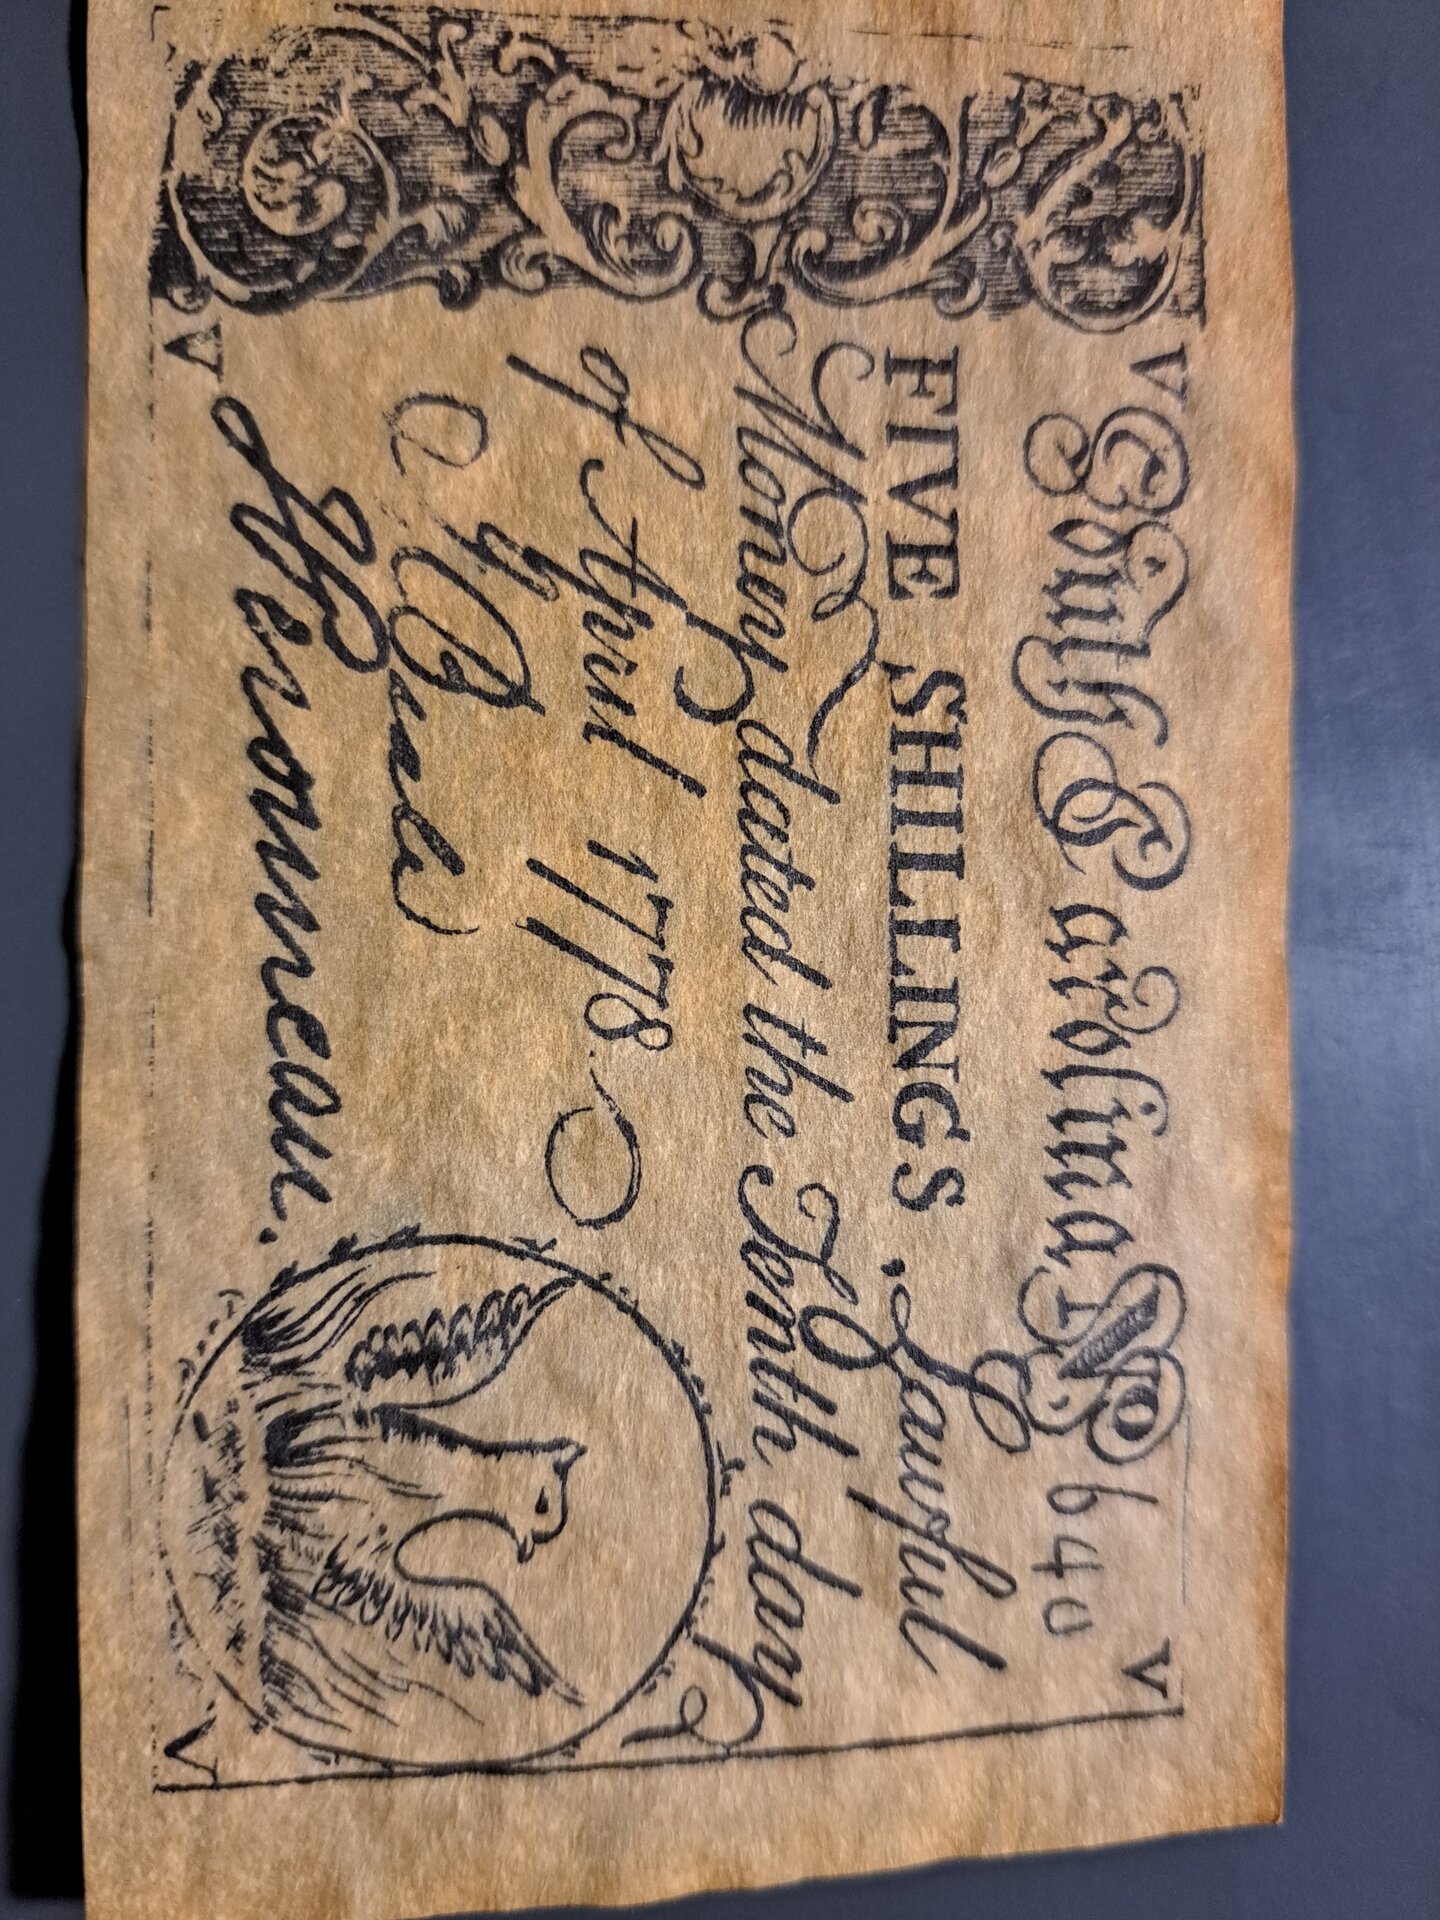 V South Carolina No 640 V
FIVE SHILLINGS. Lawful
Money dated the Tenth day
of April 1778.
Heronneau.
V V